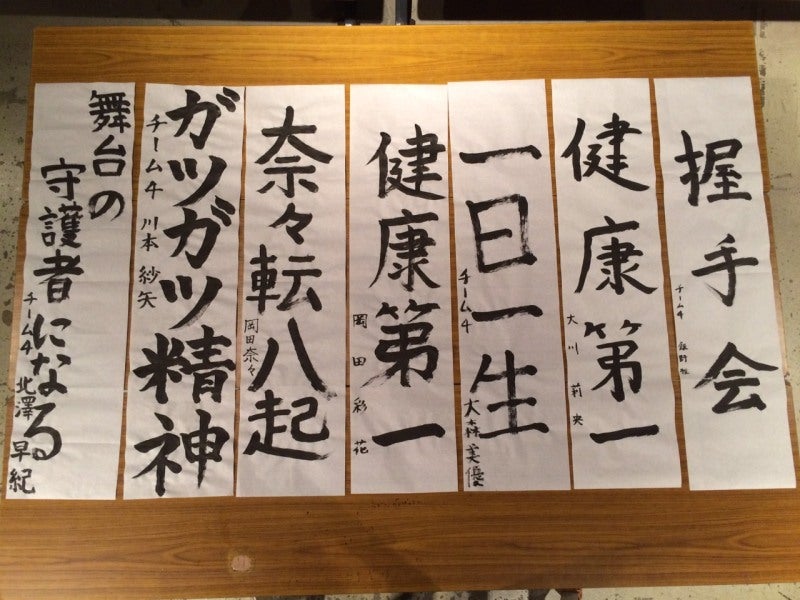 握手会
チーム4 飯野雅
健康第一
大川莉央
一日一生
チーム4 大森美優
健康第一
岡田彩花
奈々転八起
岡田奈々
ガツガツ精神
チーム4 川本紗矢
舞台の
守護者になる
チーム4 北澤早紀